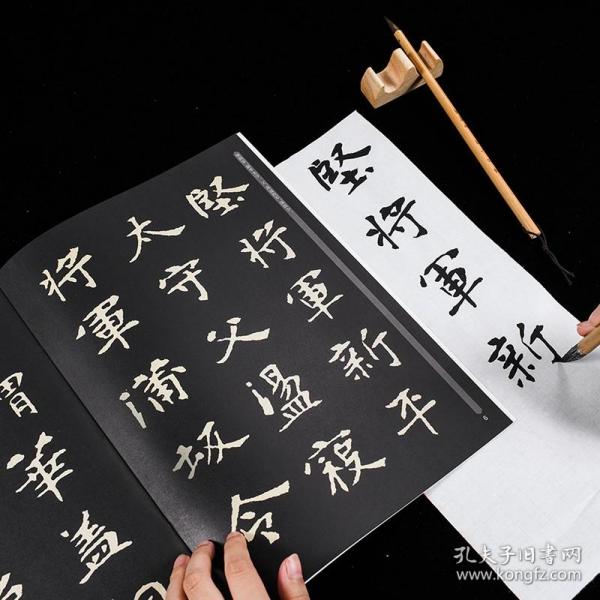 堅將軍新平
太守父盪寇
將軍蒲坂令
華蓋
堅將軍新
6
孔夫子旧书网
www.kongfz.com